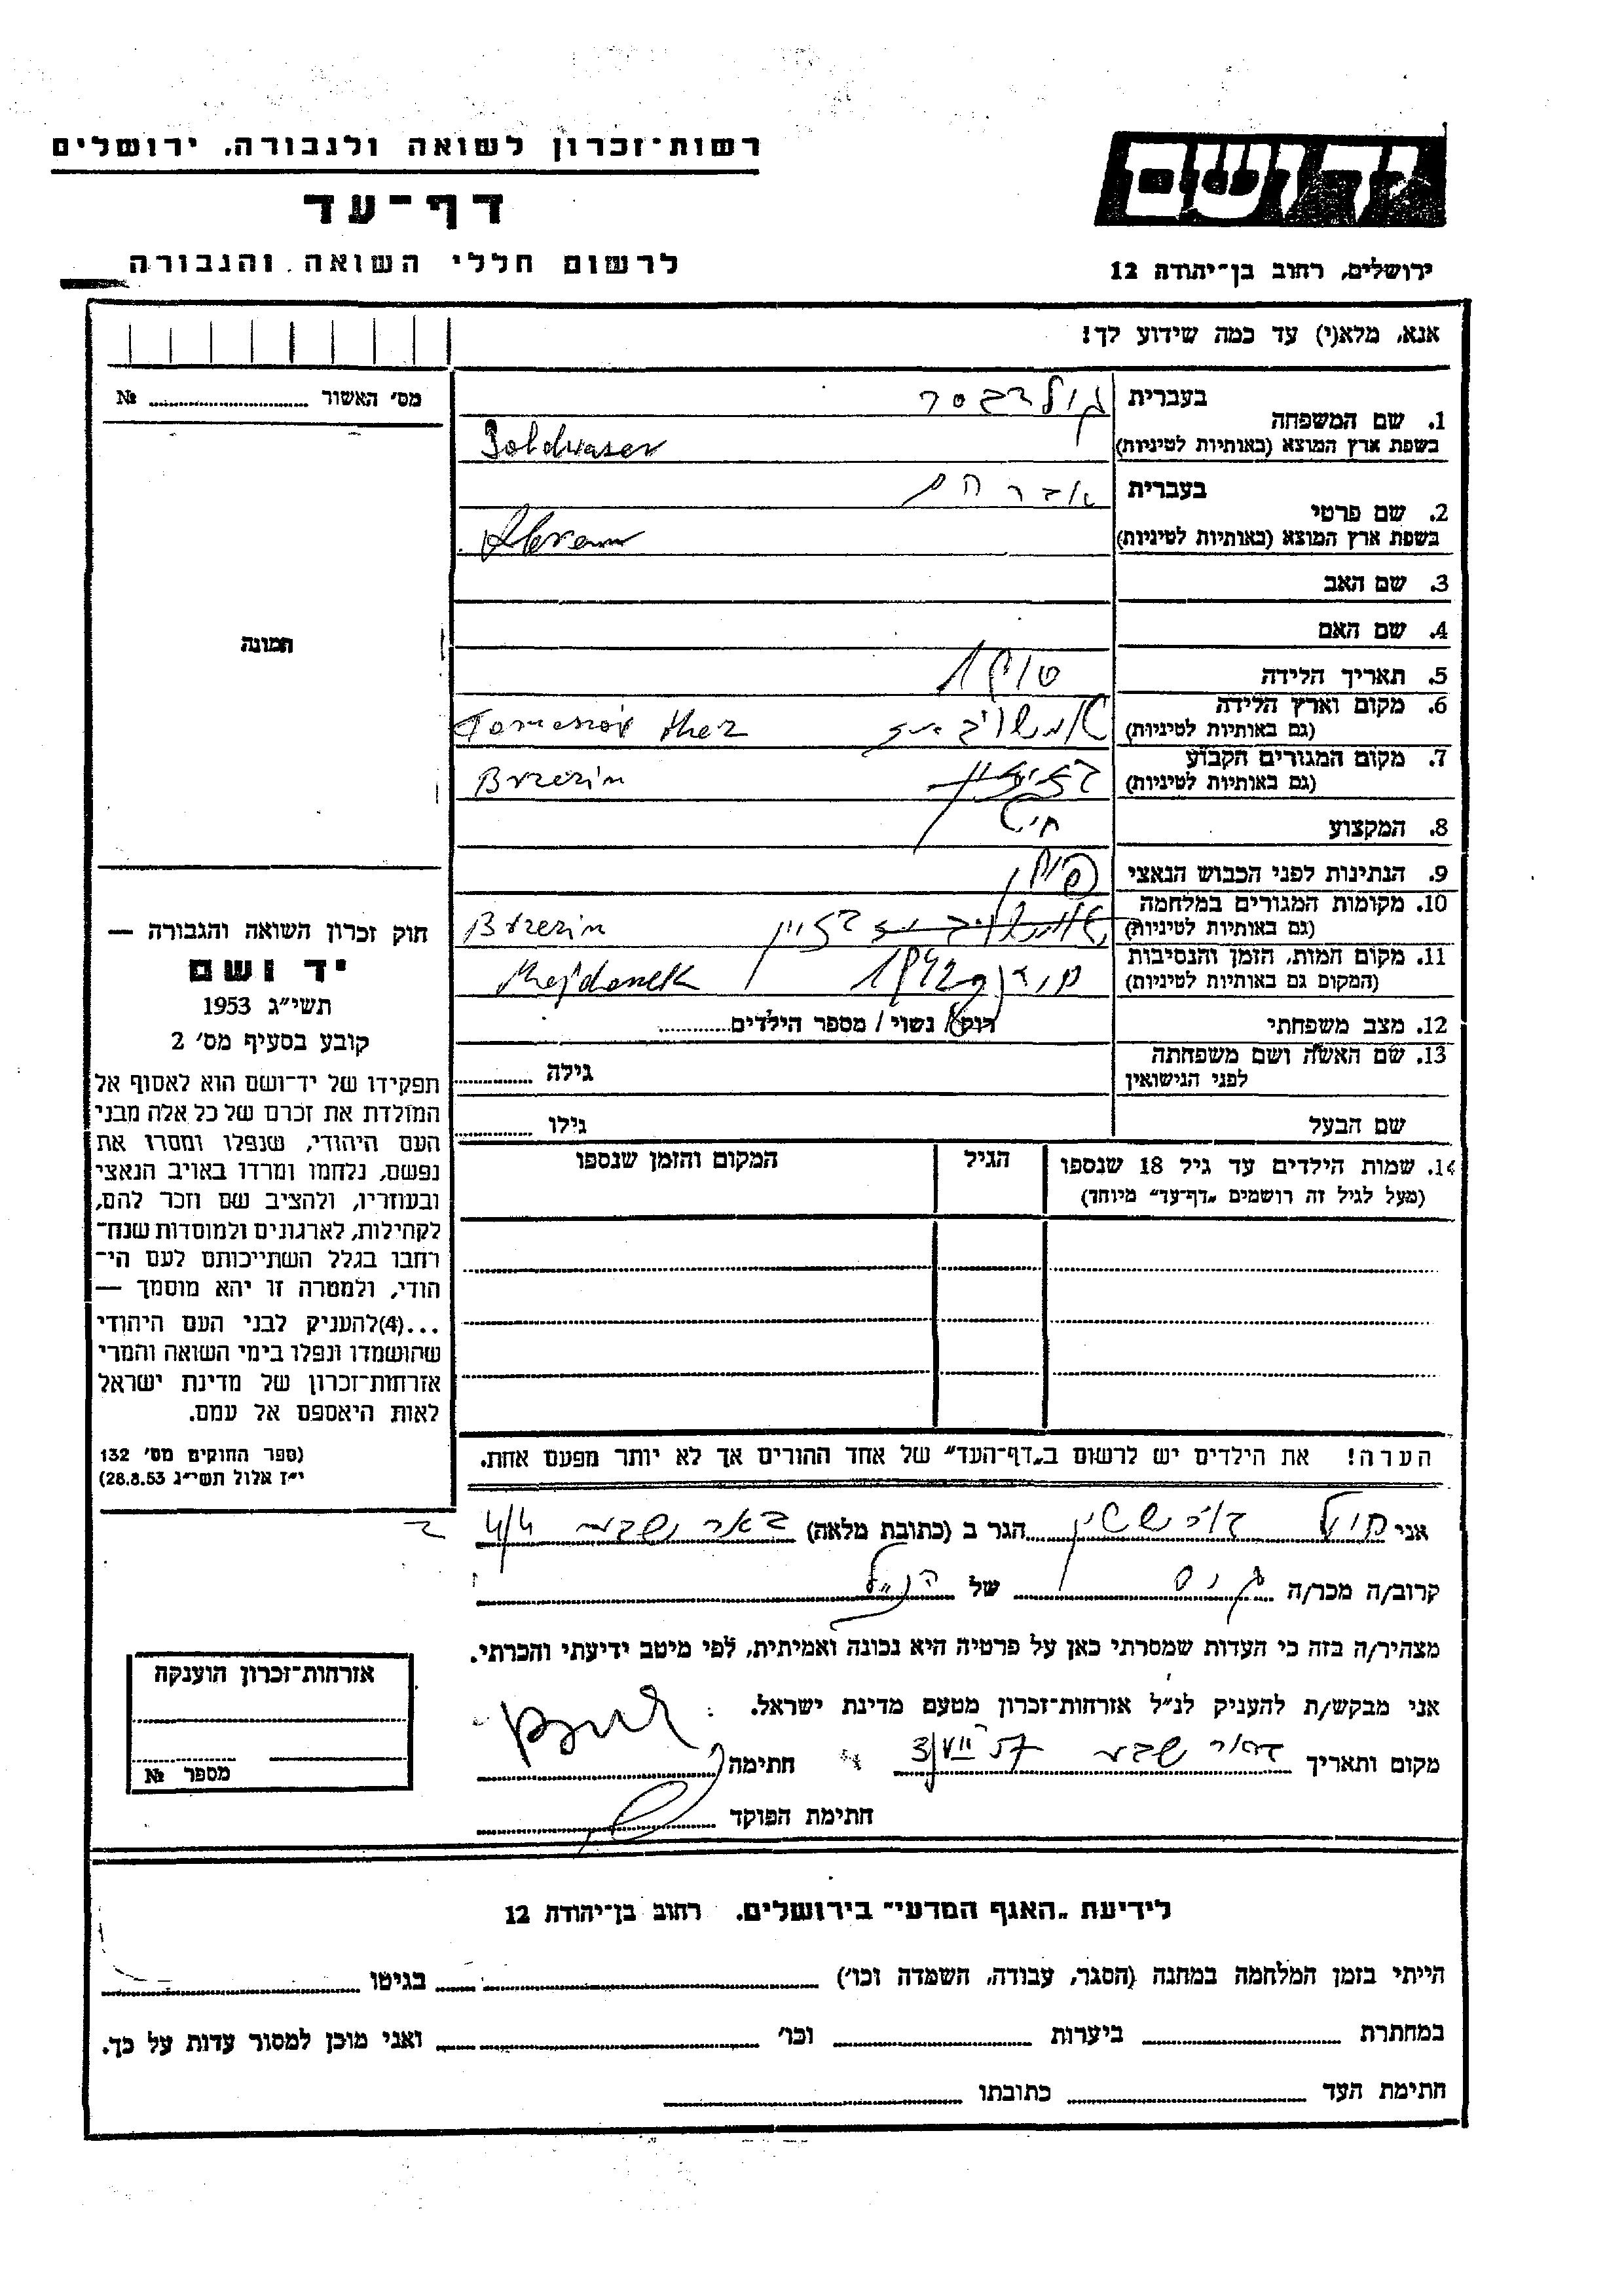 רשות־זכרון לשואה ולגבורה, ירושלים
דף־עד
לרשום חללי השואה והגבורה
יד ושם
ירושלים, רחוב בן־יהודה 12
אנא, מלא(י) עד כמה שידוע לך!
מס' האשור № ........
1. שם המשפחה
בעברית גולדבסר
בשפת ארץ המוצא (באותיות לטיניות) Goldwaser
2. שם פרטי
בעברית אברהם
בשפת ארץ המוצא (באותיות לטיניות) Abram
3. שם האב
4. שם האם
5. תאריך הלידה
6. מקום וארץ הלידה
(גם באותיות לטיניות)
7. מקום המגורים הקבוע
(גם באותיות לטיניות) Brzezin
8. המקצוע חייט
9. הנתינות לפני הכבוש הנאצי פולין
10. מקומות המגורים במלחמה
(גם באותיות לטיניות) Brzezin
11. מקום המות, הזמן והנסיבות
(המקום גם באותיות לטיניות) 1942 Majdanek
12. מצב משפחתי רווק / נשוי / מספר הילדים........
13. שם האשה ושם משפחתה
לפני הנישואין גילה ........
שם הבעל גילו ........
14. שמות הילדים עד גיל 18 שנספו הגיל המקום והזמן שנספו
(מעל לגיל זה רושמים „דף־עד" מיוחד)
הערה! את הילדים יש לרשום ב„דף־העד" של אחד ההורים אך לא יותר מפעם אחת.
תמונה
חוק זכרון השואה והגבורה —
יד ושם
תשי"ג 1953
קובע בסעיף מס' 2
תפקידו של יד־ושם הוא לאסוף אל
המולדת את זכרם של כל אלה מבני
העם היהודי, שנפלו ומסרו את
נפשם, נלחמו ומרדו באויב הנאצי
ובעוזריו, ולהציב שם וזכר להם,
לקהילות, לארגונים ולמוסדות שנח־
רחבו בגלל השתייכותם לעם הי־
הודי, ולמטרה זו יהא מוסמך —
...(4)להעניק לבני העם היהודי
שהושמדו ונפלו בימי השואה והמרי
אזרחות־זכרון של מדינת ישראל
לאות היאספם אל עמם.
(ספר החוקים מס' 132
י"ז אלול תשי"ג 28.8.53)
אני הגר ב (כתובת מלאה) באר שבע
קרוב/ה מכר/ה גיס של הנ"ל
מצהיר/ה בזה כי העדות שמסרתי כאן על פרטיה היא נכונה ואמיתית, לפי מיטב ידיעתי והכרתי.
אני מבקש/ת להעניק לנ"ל אזרחות־זכרון מטעם מדינת ישראל.
מקום ותאריך באר שבע 3/VII 57 חתימה
חתימת הפוקד
אזרחות־זכרון הוענקה
מספר №
לידיעת „האגף המדעי" בירושלים, רחוב בן־יהודה 12
הייתי בזמן המלחמה במחנה (הסגר, עבודה, השמדה וכו') ........ בגיטו ........
במחתרת ........ ביערות ........ וכו' ........ ואני מוכן למסור עדות על כך.
חתימת העד ........ כתובתו ........